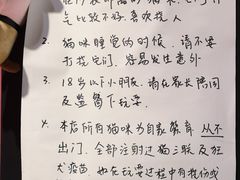 气比较不好.喜欢挠人
2. 猫咪睡觉的时候,请不要
打扰它们.容易发生意外
3. 18岁以下小朋友,请在家长陪同
及监督下玩耍.
4. 本店所有猫咪为自家教育 从不
出门.全部注射过猫三联及狂
犬疫苗 如在玩耍过程中有抓伤或